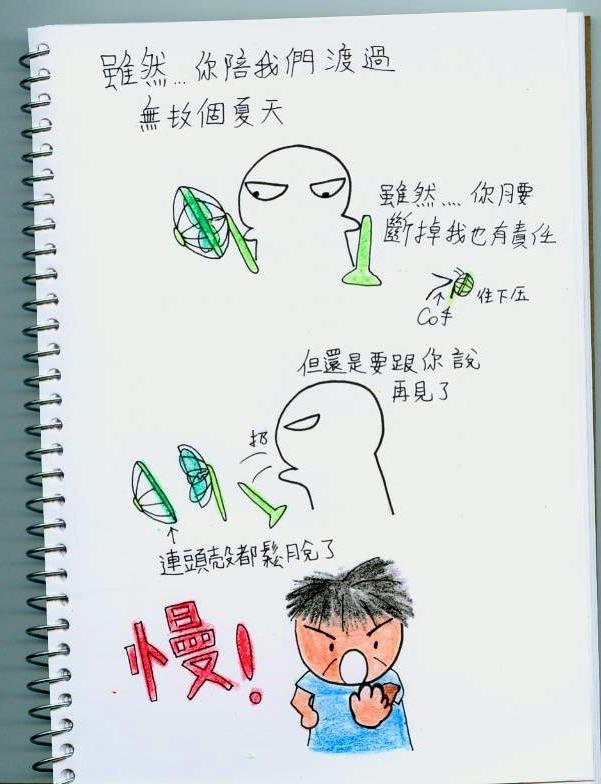 雖然...你陪我們渡過
無故個夏天
雖然....你腰
斷掉我也有責任
往下压
Co手
但還是要跟你說
再見了
扔
連頭殼都鬆脫了
慢!